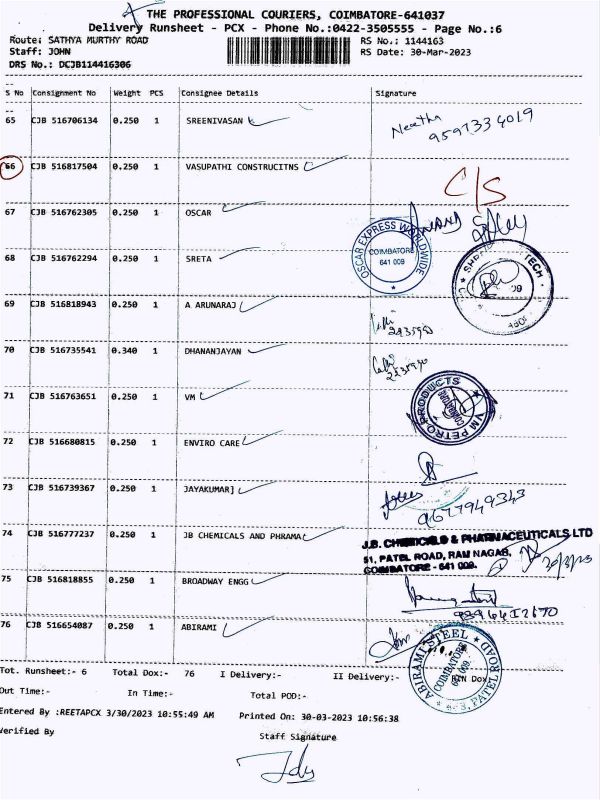 THE PROFESSIONAL COURIERS, COIMBATORE-641037
Delivery Runsheet - PCX - Phone No.:0422-3505555 - Page No.:6
Route: SATHYA MURTHY ROAD RS No.: 1144163
Staff: JOHN RS Date: 30-Mar-2023
DRS No.: DCJB114416306
S No Consignment No Weight PCS Consignee Details Signature
65 CJB 516706134 0.250 1 SREENIVASAN Neetha
66 CJB 516817504 0.250 1 VASUPATHI CONSTRUCITNS C/S
67 CJB 516762305 0.250 1 OSCAR
OSCAR EXPRESS WORLDWIDE
COIMBATORE
641 009
68 CJB 516762294 0.250 1 SRETA
69 CJB 516818943 0.250 1 A ARUNARAJ
70 CJB 516735541 0.340 1 DHANANJAYAN
71 CJB 516763651 0.250 1 VM
VM PETRO PRODUCTS
72 CJB 516680815 0.250 1 ENVIRO CARE
73 CJB 516739367 0.250 1 JAYAKUMAR]
9677949343
74 CJB 516777237 0.250 1 JB CHEMICALS AND PHRAMA
J.B. CHEMICALS & PHARMACEUTICALS LTD
51, PATEL ROAD, RAM NAGAR,
COIMBATORE - 641 009.
30/3/23
75 CJB 516818855 0.250 1 BROADWAY ENGG
76 CJB 516654087 0.250 1 ABIRAMI
ABIRAMI STEEL
COIMBATORE
641 009
Tot. Runsheet:- 6 Total Dox:- 76 I Delivery:- II Delivery:- RTN Dox
Out Time:- In Time:- Total POD:-
Entered By :REETAPCX 3/30/2023 10:55:49 AM Printed On: 30-03-2023 10:56:38
Verified By Staff Signature